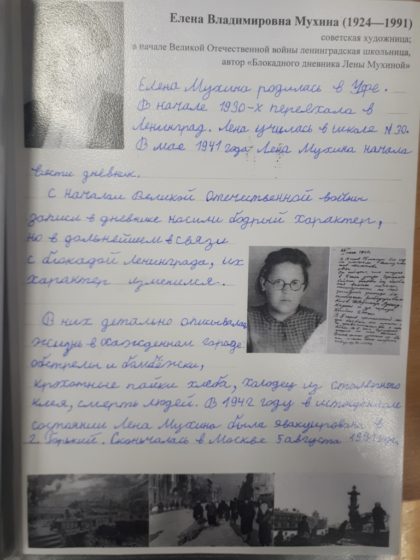 Елена Владимировна Мухина (1924—1991)
советская художница;
в начале Великой Отечественной войны ленинградская школьница,
автор «Блокадного дневника Лены Мухиной»
Елена Мухина родилась в Уфе.
В начале 1930-х переехала в
Ленинград. Лена училась в школе №30.
В мае 1941 года Лена Мухина начала
вести дневник.
С началом Великой Отечественной войны
записи в дневнике носили бодрый характер,
но в дальнейшем в связи
с блокадой Ленинграда, их
характер изменился.
В них детально описывалась
жизнь в осажденном городе
обстрелы и бомбёжки,
крохотные пайки хлеба, холодец из столярного
клея, смерть людей. В 1942 году в истощенном
состоянии Лена Мухина была эвакуирована в
г. Горький. Скончалась в Москве 5 августа 1991